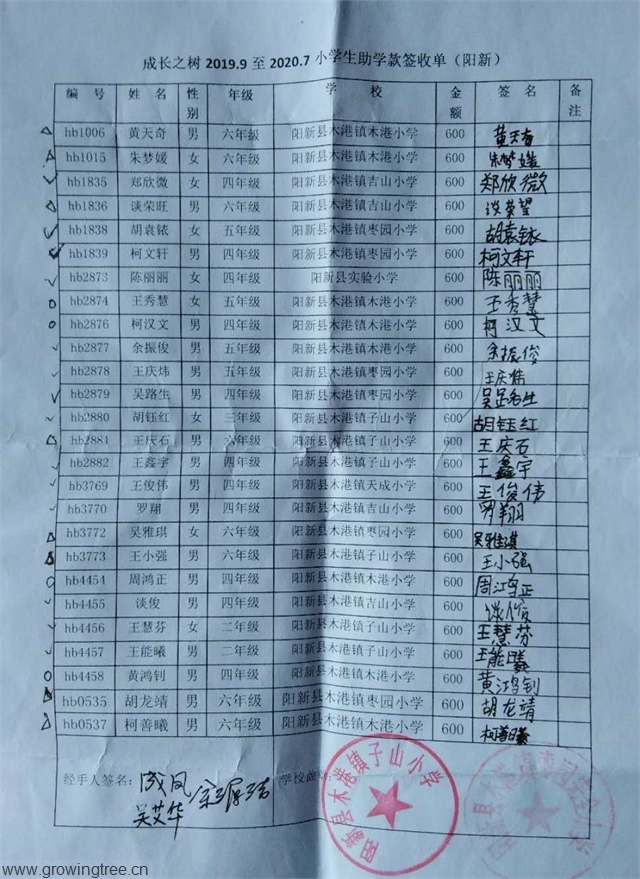 成长之树 2019.9 至 2020.7 小学生助学款签收单（阳新）
编 号 姓 名 性别 年级 学 校 金额 签 名 备注
hb1006 黄天奇 男 六年级 阳新县木港镇木港小学 600 黄天奇
hb1015 朱梦媛 女 六年级 阳新县木港镇木港小学 600 朱梦媛
hb1835 郑欣微 女 四年级 阳新县木港镇吉山小学 600 郑欣微
hb1836 谈荣旺 男 六年级 阳新县木港镇吉山小学 600 谈荣望
hb1838 胡袁铱 女 五年级 阳新县木港镇枣园小学 600 胡袁铱
hb1839 柯文轩 男 四年级 阳新县木港镇枣园小学 600 柯文轩
hb2873 陈丽丽 女 四年级 阳新县实验小学 600 陈丽丽
hb2874 王秀慧 女 五年级 阳新县木港镇木港小学 600 王秀慧
hb2876 柯汉文 男 四年级 阳新县木港镇木港小学 600 柯汉文
hb2877 余振俊 男 五年级 阳新县木港镇木港小学 600 余振俊
hb2878 王庆炜 男 五年级 阳新县木港镇枣园小学 600 王庆炜
hb2879 吴路生 男 四年级 阳新县木港镇枣园小学 600 吴路生
hb2880 胡钰红 女 三年级 阳新县木港镇子山小学 600 胡钰红
hb2881 王庆石 男 六年级 阳新县木港镇子山小学 600 王庆石
hb2882 王鑫宇 男 四年级 阳新县木港镇子山小学 600 王鑫宇
hb3769 王俊伟 男 四年级 阳新县木港镇天成小学 600 王俊伟
hb3770 罗翔 男 四年级 阳新县木港镇吉山小学 600 罗翔
hb3772 吴雅琪 女 六年级 阳新县木港镇枣园小学 600 吴雅琪
hb3773 王小强 男 六年级 阳新县木港镇子山小学 600 王小强
hb4454 周鸿正 男 四年级 阳新县木港镇木港小学 600 周鸿正
hb4455 谈俊 男 四年级 阳新县木港镇吉山小学 600 谈俊
hb4456 王慧芬 女 二年级 阳新县木港镇子山小学 600 王慧芬
hb4457 王能曦 男 二年级 阳新县木港镇子山小学 600 王能曦
hb4458 黄鸿钊 男 四年级 阳新县木港镇木港小学 600 黄鸿钊
hb0535 胡龙靖 男 六年级 阳新县木港镇枣园小学 600 胡龙靖
hb0537 柯善曦 男 六年级 阳新县木港镇木港小学 600 柯善曦
经手人签名： 成凤 学校
吴艾华
阳新县木港镇子山小学
www.growingtree.cn